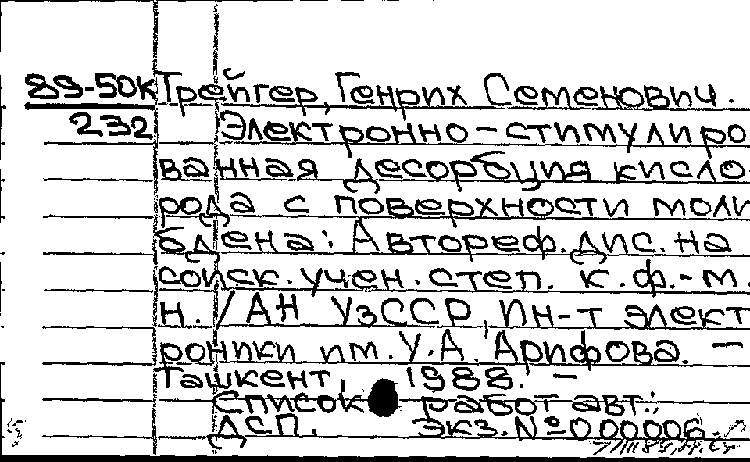 89-50к Грейгер, Генрих Семенович.
232 Электронно-стимулиро
ванная десорбция кисло-
рода с поверхности моли
бдена: Автореф. дис. на
соиск. учен. степ. к.ф.-м.
н. / АН УзССР, Ин-т элект
роники им. У.А. Арифова. —
Ташкент, 1988. —
Список работ авт.:
ДСП. Экз. №000006.